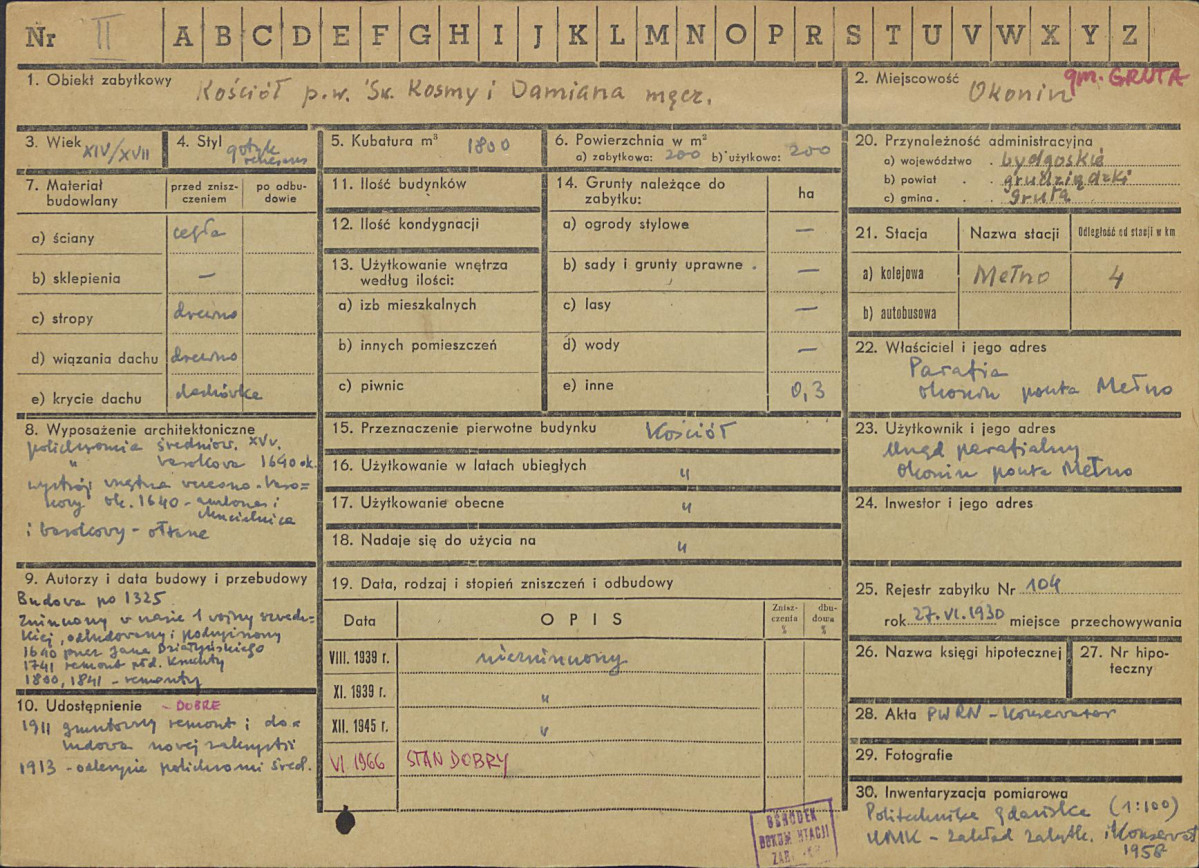 Nr II A B C D E F G H I J K L M N O P R S T U V W X Y Z
1. Obiekt zabytkowy Kościół p.w. Św. Kosmy i Damiana męcz.
2. Miejscowość gm. GRUTA
Okonin
3. Wiek XIV/XVII
4. Styl gotyk
renesans
5. Kubatura m³ 1800
6. Powierzchnia w m²
a) zabytkowa: 200 b) użytkowa: 200
7. Materiał budowlany
przed zniszczeniem
po odbudowie
a) ściany cegła
b) sklepienia —
c) stropy drewno
d) wiązania dachu drewno
e) krycie dachu dachówka
8. Wyposażenie architektoniczne
polichromia średniow. XV w.
" barokowa 1640 ok.
wystrój wnętrza wczesno-baro-
kowy ok. 1640 - ambona i
chrzcielnica
i barokowy - ołtarze
9. Autorzy i data budowy i przebudowy
Budowa po 1325
Zniszczony w czasie 1 wojny szwedz-
kiej, odbudowany i podwyższony
1640 przez Jana Działyńskiego
1741 remont
1800, 1841 - remonty
10. Udostępnienie - DOBRE
1911 gruntowny remont i do-
budowa nowej zakrystii
1913 - odkrycie polichromii śred.
11. Ilość budynków
12. Ilość kondygnacji
13. Użytkowanie wnętrza
według ilości:
a) izb mieszkalnych
b) innych pomieszczeń
c) piwnic
14. Grunty należące do
zabytku:
ha
a) ogrody stylowe —
b) sady i grunty uprawne . —
c) lasy —
d) wody —
e) inne 0,3
15. Przeznaczenie pierwotne budynku Kościół
16. Użytkowanie w latach ubiegłych "
17. Użytkowanie obecne "
18. Nadaje się do użycia na "
19. Data, rodzaj i stopień zniszczeń i odbudowy
Data OPIS Zniszczenia % dbudowa %
VIII. 1939 r. niezniszczony
XI. 1939 r. "
XII. 1945 r. "
VI. 1966 STAN DOBRY
20. Przynależność administracyjna
a) województwo . bydgoskie
b) powiat . . grudziądzki
c) gmina . . Gruta
21. Stacja Nazwa stacji Odległość od stacji w km
a) kolejowa Mełno 4
b) autobusowa
22. Właściciel i jego adres
Parafia
Okonin poczta Mełno
23. Użytkownik i jego adres
Urząd parafialny
Okonin poczta Mełno
24. Inwestor i jego adres
25. Rejestr zabytku Nr 104
rok 27.VI.1930 miejsce przechowywania
26. Nazwa księgi hipotecznej
27. Nr hipoteczny
28. Akta PWRN - Konserwator
29. Fotografie
30. Inwentaryzacja pomiarowa
Politechnika Gdańska (1:100)
UMK - Zakład Zabytk. i Konserwat
1958
OŚRODEK
DOKUMENTACJI